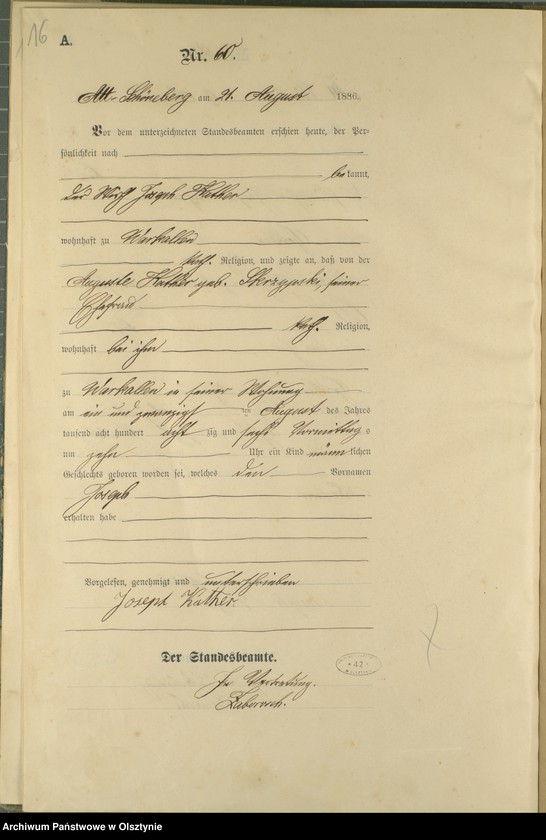 16
A.
Nr. 60.
Alt-Schöneberg am 21. August 1886.
Vor dem unterzeichneten Standesbeamten erschien heute, der Per-
sönlichkeit nach
bekannt,
der Wirth Joseph Kather
wohnhaft zu Warkallen
kath. Religion, und zeigte an, daß von der
Auguste Kather geb. Skrzypski, seiner
Ehefrau
kath. Religion,
wohnhaft bei ihm
zu Warkallen in seiner Wohnung
am ein und zwanzigsten August des Jahres
tausend acht hundert achtzig und sechs Vormittags
um zehn Uhr ein Kind männlichen
Geschlechts geboren worden sei, welches den Vornamen
Joseph
erhalten habe
Vorgelesen, genehmigt und unterschrieben
Joseph Kather.
Der Standesbeamte.
In Vertretung.
42
Archiwum Państwowe w Olsztynie